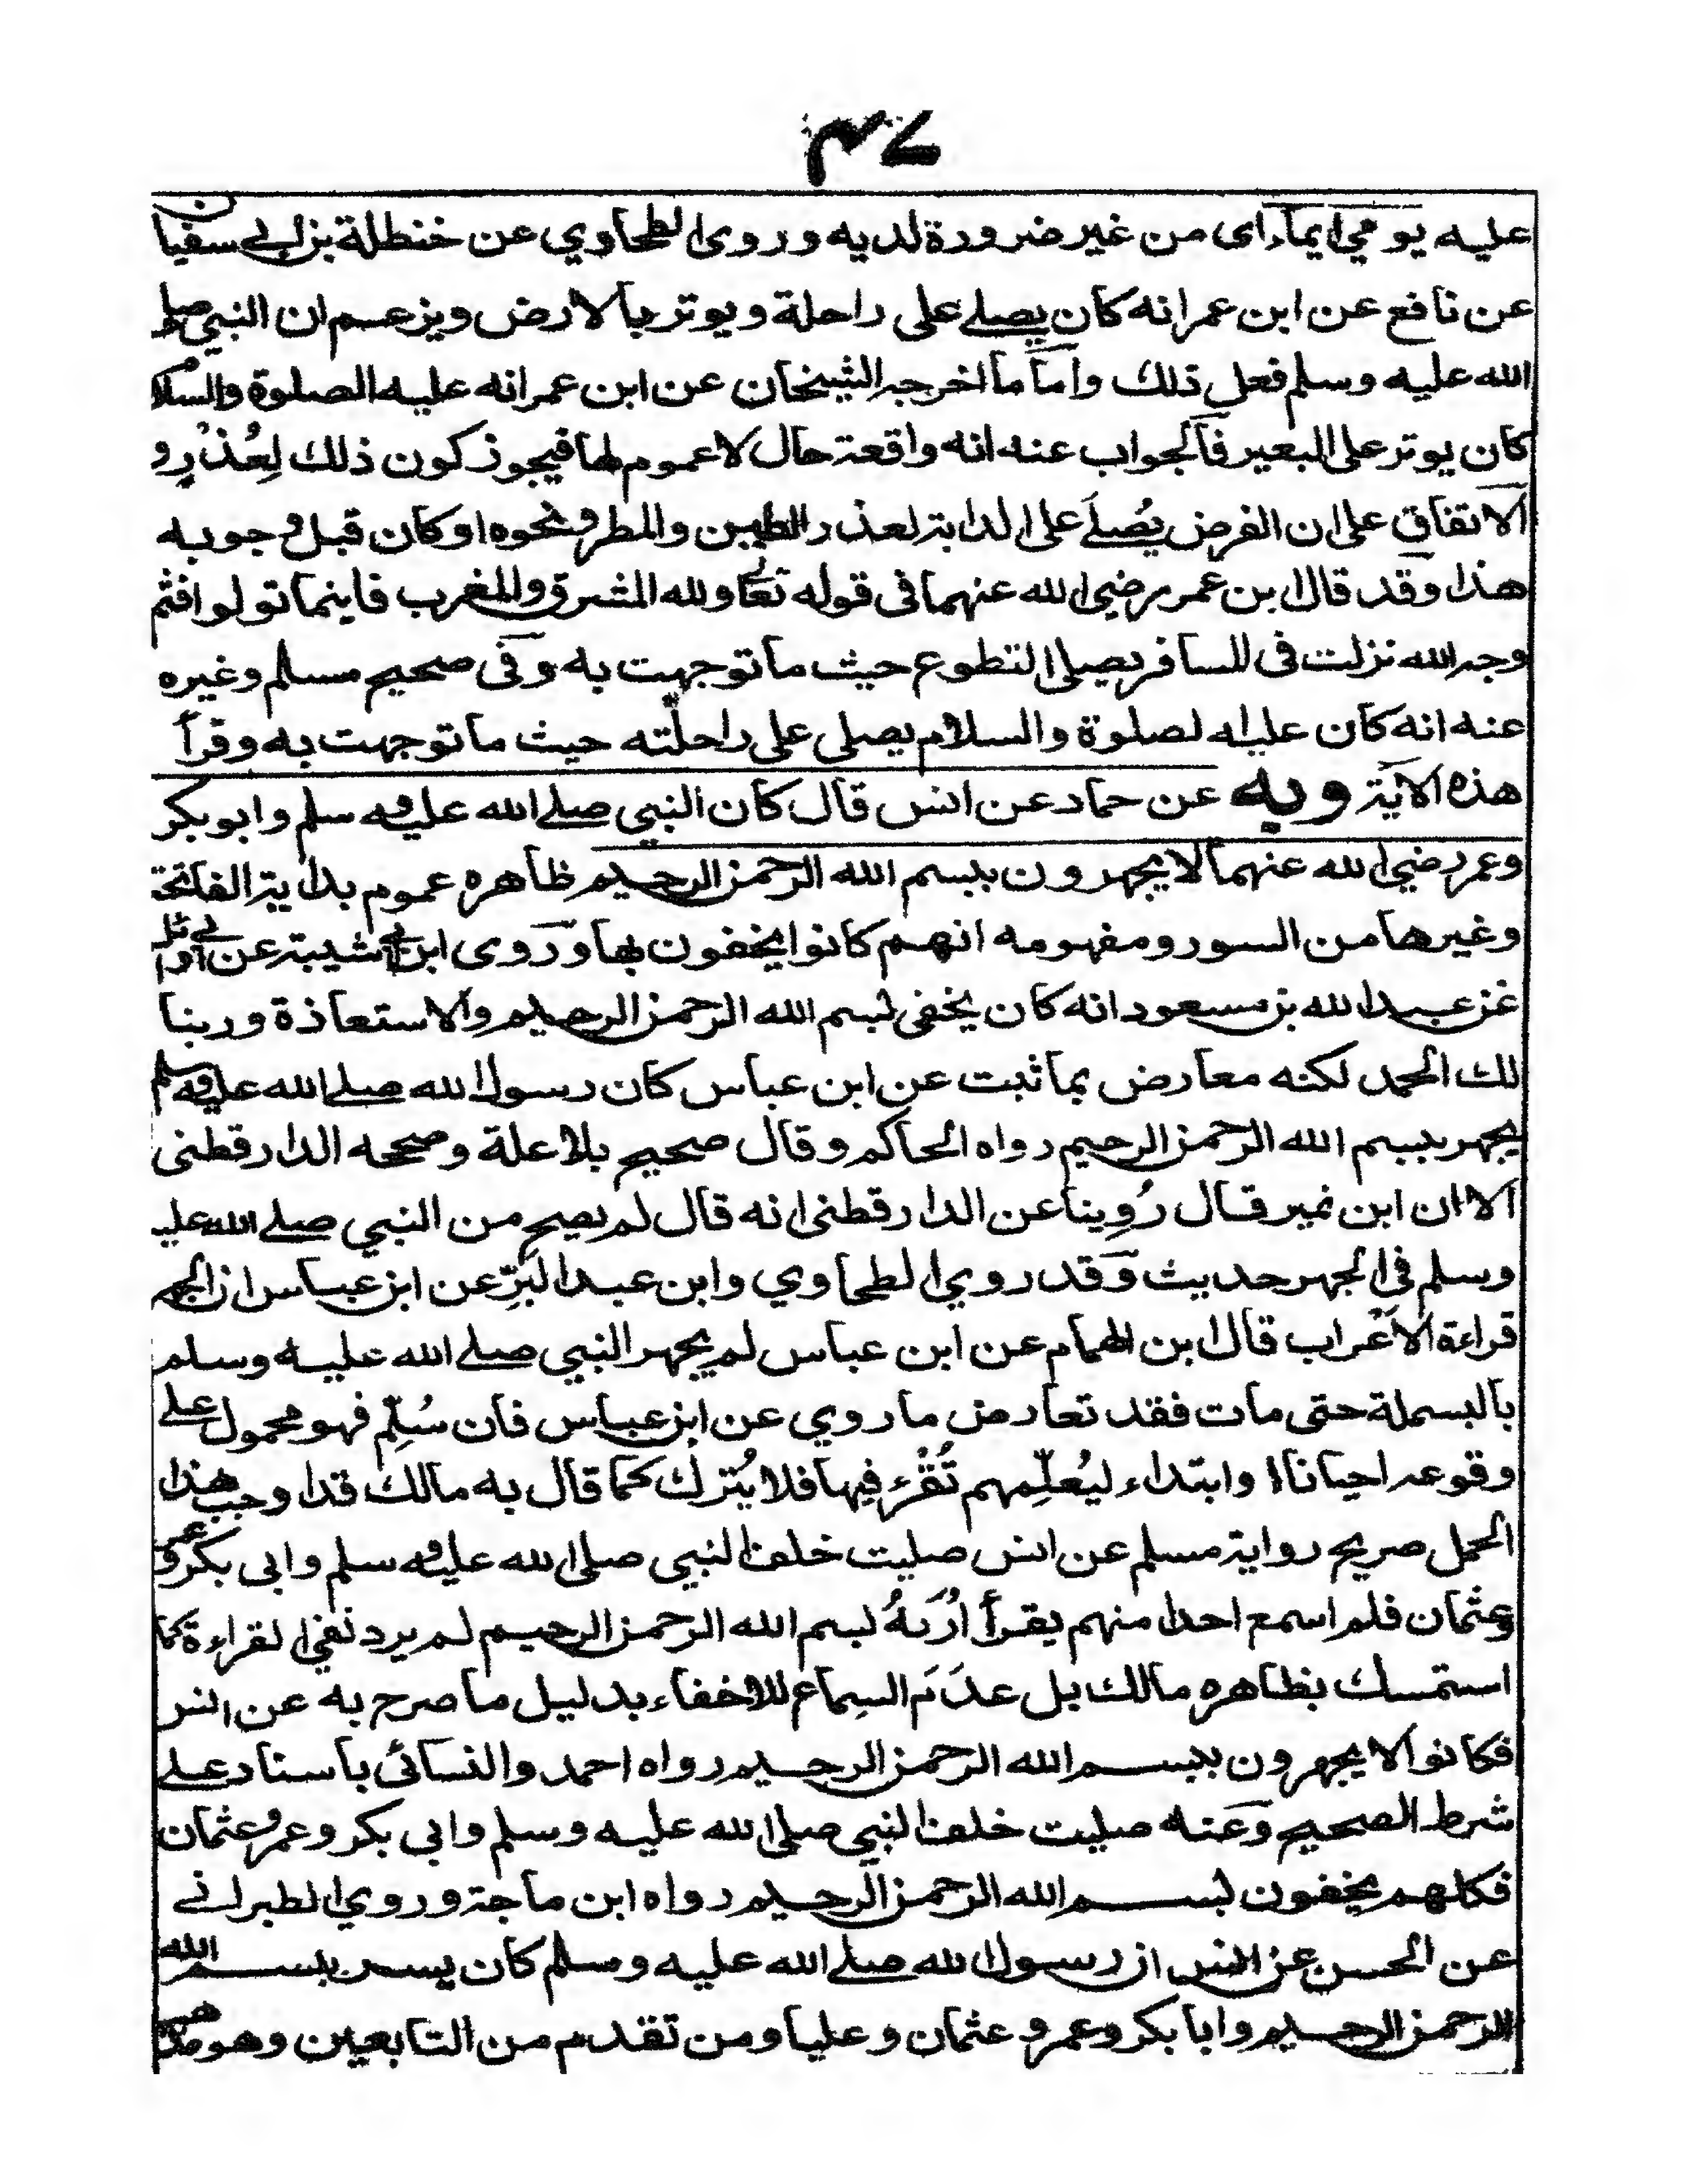 ٤٣
عليه يومي ايماء اى من غير ضرورة لديه وروى الطحاوي عن خنظلة بن ابي سفيان
عن نافع عن ابن عمر انه كان يصلے على راحلة ويوتر بالارض ويزعم ان النبي صلے
الله عليه وسلم فعل ذلك واما ما اخرجه الشيخان عن ابن عمر انه عليه الصلوة والسلام
كان يوتر على البعير فالجواب عنه انه واقعة حال لا عموم لها فيجوز كون ذلك لِعُذْرٍ و
الاتفاق على ان الفرض يُصلےَ على الدابة لعذر الطين والمطر ونحوه او كان قبل وجوبه
هذا وقد قال ابن عمر رضي الله عنهما فى قوله تعالے ولله المشرق والمغرب فاينما تولوا فثم
وجه الله نزلت فى المسافر يصلى التطوع حيث ما توجهت به وفى صحيح مسلم وغيره
عنه انه كان عليه الصلوة والسلام يصلى على راحلته حيث ما توجهت به وقرأ
هذه الاية وبه عن حماد عن انس قال كان النبي صلے الله عليه وسلم وابو بكر
وعمر رضي الله عنهما لا يجهرون ببسم الله الرحمن الرحيم ظاهره عموم بداية الفاتحة
وغيرها من السور ومفهومه انهم كانوا يخفون بها وروى ابن ابي شيبة عن ابي وائل
عن عبد الله بن مسعود انه كان يخفى بسم الله الرحمن الرحيم والاستعاذة وربنا
لك الحمد لكنه معارض بما ثبت عن ابن عباس كان رسول الله صلے الله عليه وسلم
يجهر ببسم الله الرحمن الرحيم رواه الحاكم وقال صحيح بلا علة وصححه الدارقطنى
الا ان ابن نمير قال رُوِينا عن الدارقطنى انه قال لم يصح من النبي صلے الله عليه
وسلم فى الجهر حديث وقد روي الطحاوي وابن عبد البَرِّ عن ابن عباس ان الجهر
قراءة الاعْراب قال ابن الهمام عن ابن عباس لم يجهر النبي صلے الله عليه وسلم
بالبسملة حتى مات فقد تعارض ما روي عن ابن عباس فان سُلِّم فهو محمول علے
وقوعه احيانا او ابتداء ليُعلِّمهم تُقْرء فِيها فلا يُترك كما قال به مالك قدا وجب هذا
الحمل صريح رواية مسلم عن انس صليت خلف النبي صلى الله عليه وسلم وابى بكر وعمر
وعثمان فلم اسمع احدا منهم يقرأ بسم الله الرحمن الرحيم لم يرد نفي القراءة كما
استمسك بظاهره مالك بل عدَمَ السماع للاخفاء بدليل ما صرح به عن انس
فكانوا لا يجهرون ببسم الله الرحمن الرحيم رواه احمد والنسائى باسناد علے
شرط الصحيح وعنه صليت خلف النبي صلى الله عليه وسلم وابى بكر وعمر وعثمان
فكلهم يخفون بسم الله الرحمن الرحيم رواه ابن ماجة وروي الطبرانے
عن الحسن عن انس ان رسول الله صلے الله عليه وسلم كان يسر ببسم الله
الرحمن الرحيم وابا بكر وعمر وعثمان وعليا ومن تقدم من التابعين وهو مذهب